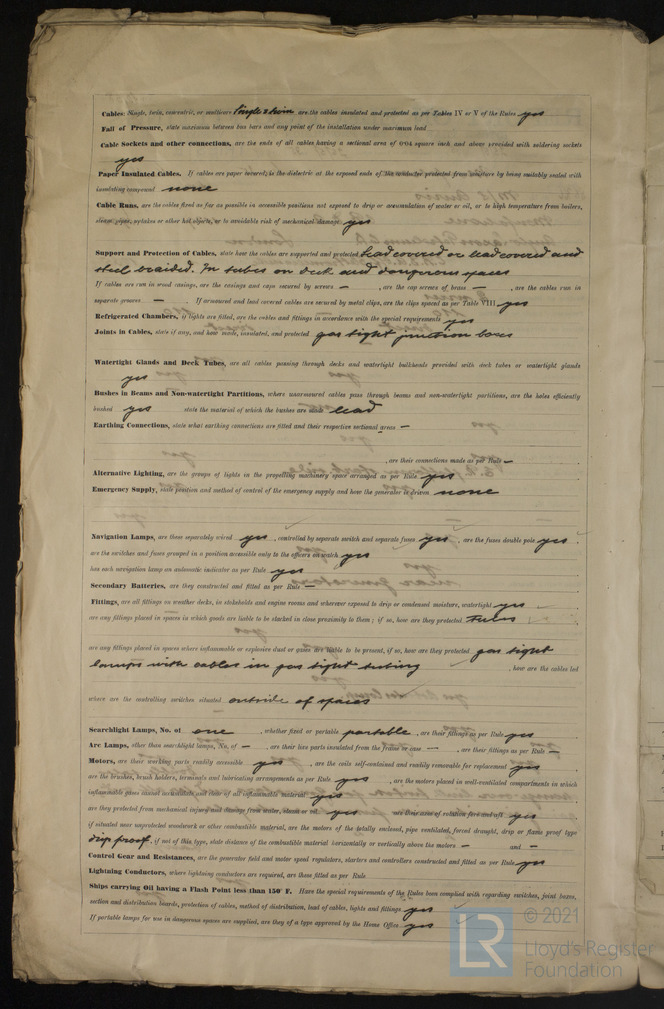 Cables: Single, twin, concentric, or multicore Single & twin are the cables insulated and protected as per Tables IV or V of the Rules yes
Fall of Pressure, state maximum between bus bars and any point of the installation under maximum load
Cable Sockets and other connections, are the ends of all cables having a sectional area of 0·04 square inch and above provided with soldering sockets
yes
Paper Insulated Cables. If cables are paper covered, is the dielectric at the exposed ends of the conductor protected from moisture by being suitably sealed with
insulating compound none
Cable Runs, are the cables fixed as far as possible in accessible positions not exposed to drip or accumulation of water or oil, or to high temperature from boilers,
steam pipes, uptakes or other hot objects, or to avoidable risk of mechanical damage yes
Support and Protection of Cables, state how the cables are supported and protected Lead covered or lead covered and
steel braided. In tubes on deck and dangerous spaces
If cables are run in wood casings, are the casings and caps secured by screws — , are the cap screws of brass — , are the cables run in
separate grooves — . If armoured and lead covered cables are secured by metal clips, are the clips spaced as per Table VIII yes
Refrigerated Chambers, if lights are fitted, are the cables and fittings in accordance with the special requirements yes
Joints in Cables, state if any, and how made, insulated, and protected gas tight junction boxes
Watertight Glands and Deck Tubes, are all cables passing through decks and watertight bulkheads provided with deck tubes or watertight glands
yes
Bushes in Beams and Non-watertight Partitions, where unarmoured cables pass through beams and non-watertight partitions, are the holes efficiently
bushed yes state the material of which the bushes are made lead
Earthing Connections, state what earthing connections are fitted and their respective sectional areas —
, are their connections made as per Rule —
Alternative Lighting, are the groups of lights in the propelling machinery space arranged as per Rule yes
Emergency Supply, state position and method of control of the emergency supply and how the generator is driven none
Navigation Lamps, are these separately wired yes , controlled by separate switch and separate fuses yes , are the fuses double pole yes
are the switches and fuses grouped in a position accessible only to the officers on watch yes
has each navigation lamp an automatic indicator as per Rule yes
Secondary Batteries, are they constructed and fitted as per Rule —
Fittings, are all fittings on weather decks, in stokeholds and engine rooms and wherever exposed to drip or condensed moisture, watertight yes
are any fittings placed in spaces in which goods are liable to be stacked in close proximity to them; if so, how are they protected
are any fittings placed in spaces where inflammable or explosive dust or gases are liable to be present, if so, how are they protected gas tight
lamps with cables in gas tight tubing , how are the cables led
where are the controlling switches situated outside of spaces
Searchlight Lamps, No. of one , whether fixed or portable portable , are their fittings as per Rule yes
Arc Lamps, other than searchlight lamps, No. of — , are their live parts insulated from the frame or case — , are their fittings as per Rule —
Motors, are their working parts readily accessible yes , are the coils self-contained and readily removable for replacement yes
are the brushes, brush holders, terminals and lubricating arrangements as per Rule yes , are the motors placed in well-ventilated compartments in which
inflammable gases cannot accumulate and clear of all inflammable material yes
are they protected from mechanical injury and damage from water, steam or oil yes are their axes of rotation fore and aft yes
if situated near unprotected woodwork or other combustible material, are the motors of the totally enclosed, pipe ventilated, forced draught, drip or flame proof type
drip proof, if not of this type, state distance of the combustible material horizontally or vertically above the motors — and —
Control Gear and Resistances, are the generator field and motor speed regulators, starters and controllers constructed and fitted as per Rule yes
Lightning Conductors, where lightning conductors are required, are these fitted as per Rule
Ships carrying Oil having a Flash Point less than 150° F. Have the special requirements of the Rules been complied with regarding switches, joint boxes,
section and distribution boards, protection of cables, method of distribution, lead of cables, lights and fittings yes
If portable lamps for use in dangerous spaces are supplied, are they of a type approved by the Home Office yes
LR © 2021
Lloyd's Register
Foundation